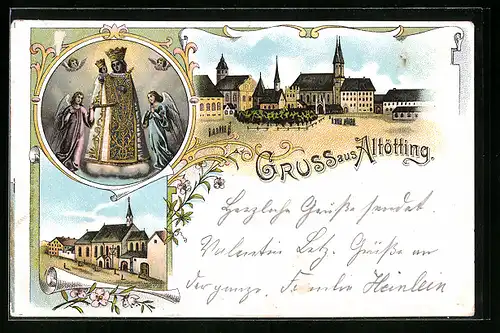 GRUSS aus Altötting.
Herzliche Grüße sendet.
Valentin Letz. Grüße an
der ganze. Familie Heinlein